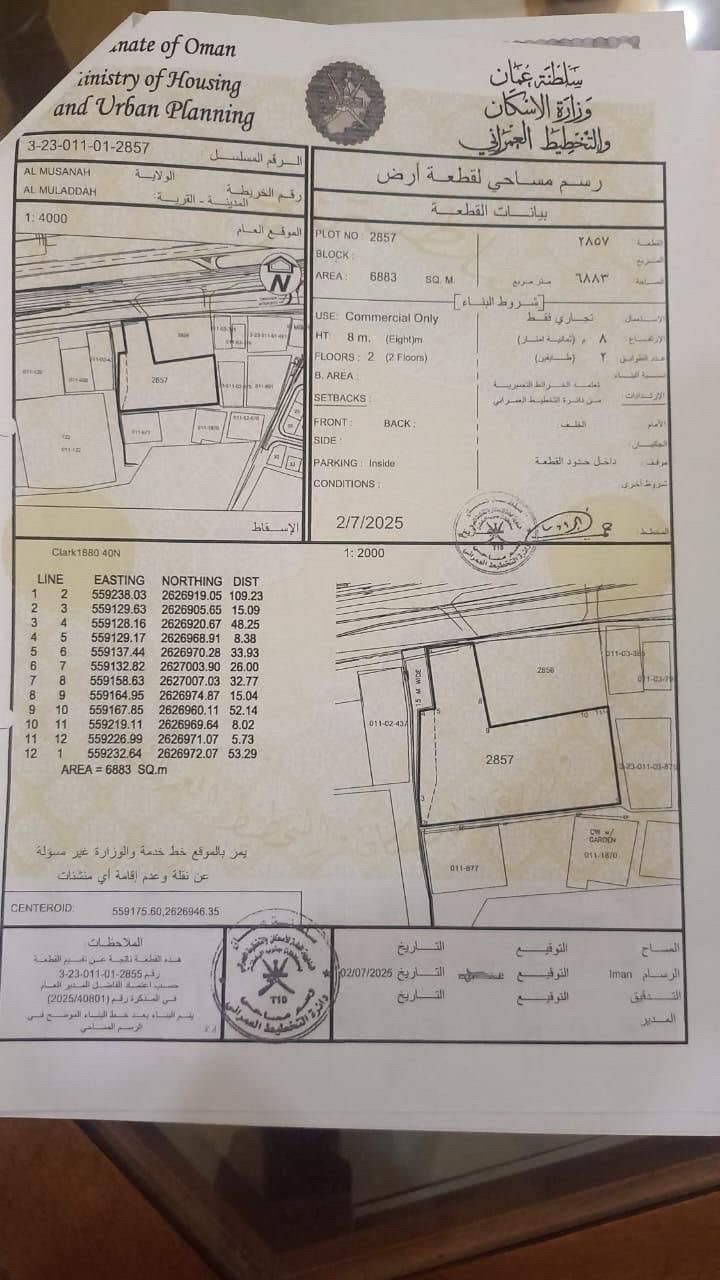 nate of Oman
inistry of Housing
and Urban Planning
سلطنة عمان
وزارة الإسكان
والتخطيط العمراني
3-23-011-01-2857
الرقم المسلسل :
AL MUSANAH
الولاية
AL MULADDAH
رقم الخريطة
المدينة - القرية:
1: 4000
الموقع العام
N
2856
2857
011-120
122
011-122
011-677
011-1870
الإسقاط
رسم مساحي لقطعة أرض
بيانات القطعة
PLOT NO : 2857
٢٨٥٧
القطعة
BLOCK :
المربع
AREA : 6883 SQ. M.
٦٨٨٣ متر مربع
المساحة
[شروط البناء]
USE: Commercial Only
تجاري فقط
الإستعمال
HT: 8 m. (Eight)m
٨ م (ثمانية امتار)
الإرتفاع :
FLOORS: 2 (2 Floors)
٢ (طابقين)
عدد الطوابق
B. AREA :
نسبة البناء:
SETBACKS :
تعتمد الخرائط التفصيلية
من دائرة التخطيط العمراني
الإرتدادات :
FRONT : BACK :
الخلف:
الأمام
SIDE :
الجانبين:
PARKING : Inside
داخل حدود القطعة
موقف:
CONDITIONS :
شروط أخرى:
2/7/2025
المخطط:
Clark1880 40N
LINE EASTING NORTHING DIST
1 2 559238.03 2626919.05 109.23
2 3 559129.63 2626905.65 15.09
3 4 559128.16 2626920.67 48.25
4 5 559129.17 2626968.91 8.38
5 6 559137.44 2626970.28 33.93
6 7 559132.82 2627003.90 26.00
7 8 559158.63 2627007.03 32.77
8 9 559164.95 2626974.87 15.04
9 10 559167.85 2626960.11 52.14
10 11 559219.11 2626969.64 8.02
11 12 559226.99 2626971.07 5.73
12 1 559232.64 2626972.07 53.29
AREA = 6883 SQ.m
1: 2000
15 M WIDE
2856
011-02-437
2857
011-677
CW w/
GARDEN
011-1870
يمر بالموقع خط خدمة والوزارة غير مسؤلة
عن نقلة وعدم إقامة أي منشئات
CENTEROID: 559175.60,2626946.35
الملاحظات:
هذه القطعة ناتجة عن تقسيم القطعة
رقم 2855-01-011-23-3
حسب اعتماد الفاضل المدير العام
في المذكرة رقم (2025/40801)
يتم البناء بعد خط البناء الموضح في
الرسم المساحي
T10
دائرة التخطيط العمراني
المساح
التوقيع
التاريخ
الرسام Iman
التوقيع
التاريخ 02/07/2025
التدقيق
التوقيع
التاريخ
المدير